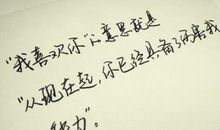 "我喜欢你"的意思就是
"从现在起，你已经具备了伤害我
能力"。